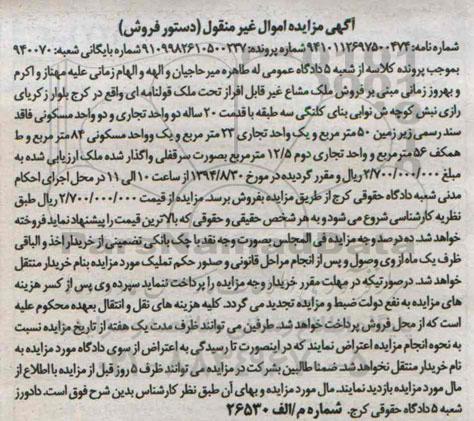 آگهی مزایده اموال غیر منقول (دستور فروش)
شماره نامه: ۹۴۱۰۱۱۲۶۹۷۵۰۰۴۷۴ شماره پرونده: ۹۱۰۹۹۸۲۶۱۰۵۰۰۲۳۷ شماره بایگانی شعبه: ۹۴۰۰۷۰
بموجب پرونده کلاسه از شعبه ۵ دادگاه عمومی له طاهره میرحاجیان و الهه و الهام زمانی علیه مهناز و اکرم
و بهروز زمانی مبنی بر فروش ملک مشاع غیر قابل افراز تحت ملک قولنامه ای واقع در کرج بلوار زکریای
رازی نبش کوچه ش نوابی بنای کلنگی سه طبقه با قدمت ۲۰ ساله دو واحد تجاری و دو واحد مسکونی فاقد
سند رسمی زیر زمین ۵۰ متر مربع و یک واحد تجاری ۲۳ متر مربع و یک وواحد مسکونی ۸۴ متر مربع و ط
همکف ۵۶ متر مربع و واحد تجاری دوم ۱۲/۵ متر مربع بصورت سرقفلی واگذار شده ملک ارزیابی شده به
مبلغ ۲/۷۰۰/۰۰۰/۰۰۰ ریال و مقرر گردیده در مورخ ۱۳۹۴/۸/۳۰ از ساعت ۱۰ الی ۱۱ در محل اجرای احکام
مدنی شعبه دادگاه حقوقی کرج از طریق مزایده بفروش برسد. مزایده از قیمت ۲/۷۰۰/۰۰۰/۰۰۰ ریال طبق
نظریه کارشناسی شروع می شود و به هر شخص حقیقی و حقوقی که بالاترین قیمت را پیشنهاد نماید فروخته
خواهد شد. ده درصد وجه مزایده فی المجلس بصورت وجه نقد یا چک بانکی تضمینی از خریدار اخذ و الباقی
ظرف یک ماه از وی وصول و پس از انجام مراحل قانونی و صدور حکم تملیک مورد مزایده بنام خریدار منتقل
خواهد شد. درصورتیکه در مهلت مقرر خریدار وجه مزایده را پرداخت ننماید سپرده وی پس از کسر هزینه های
مزایده به نفع دولت ضبط و مزایده تجدید می گردد. کلیه هزینه های نقل و انتقال بعهده محکوم علیه
است که از محل فروش پرداخت خواهد شد. طرفین می توانند ظرف مدت یک هفته از تاریخ مزایده نسبت
به نحوه انجام مزایده اعتراض نمایند که در اینصورت تا رسیدگی به اعتراض از سوی دادگاه مورد مزایده به
نام خریدار منتقل نخواهد شد. ضمنا طالبین بشرکت در مزایده می توانند ظرف ۵ روز قبل از مزایده با اطلاع از
مال مورد مزایده بازدید نمایند. مال مورد مزایده و بهای آن طبق نظر کارشناس بدین شرح فوق است. دادورز
شعبه ۵ دادگاه حقوقی کرج. شماره م/الف ۲۶۵۳۰